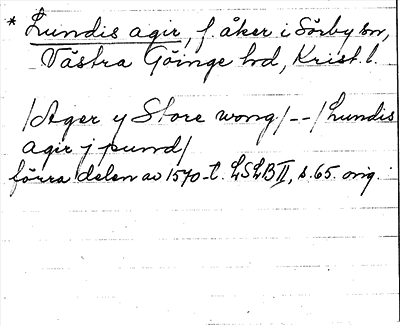 * Lundis agir, f. åker i Sörby sn,
Västra Göinge hd, Krist. l.
/Ager y Store wong/--/Lundis
agir j pund/
förra delen av 1570-t. LSLB II, s. 65. orig.